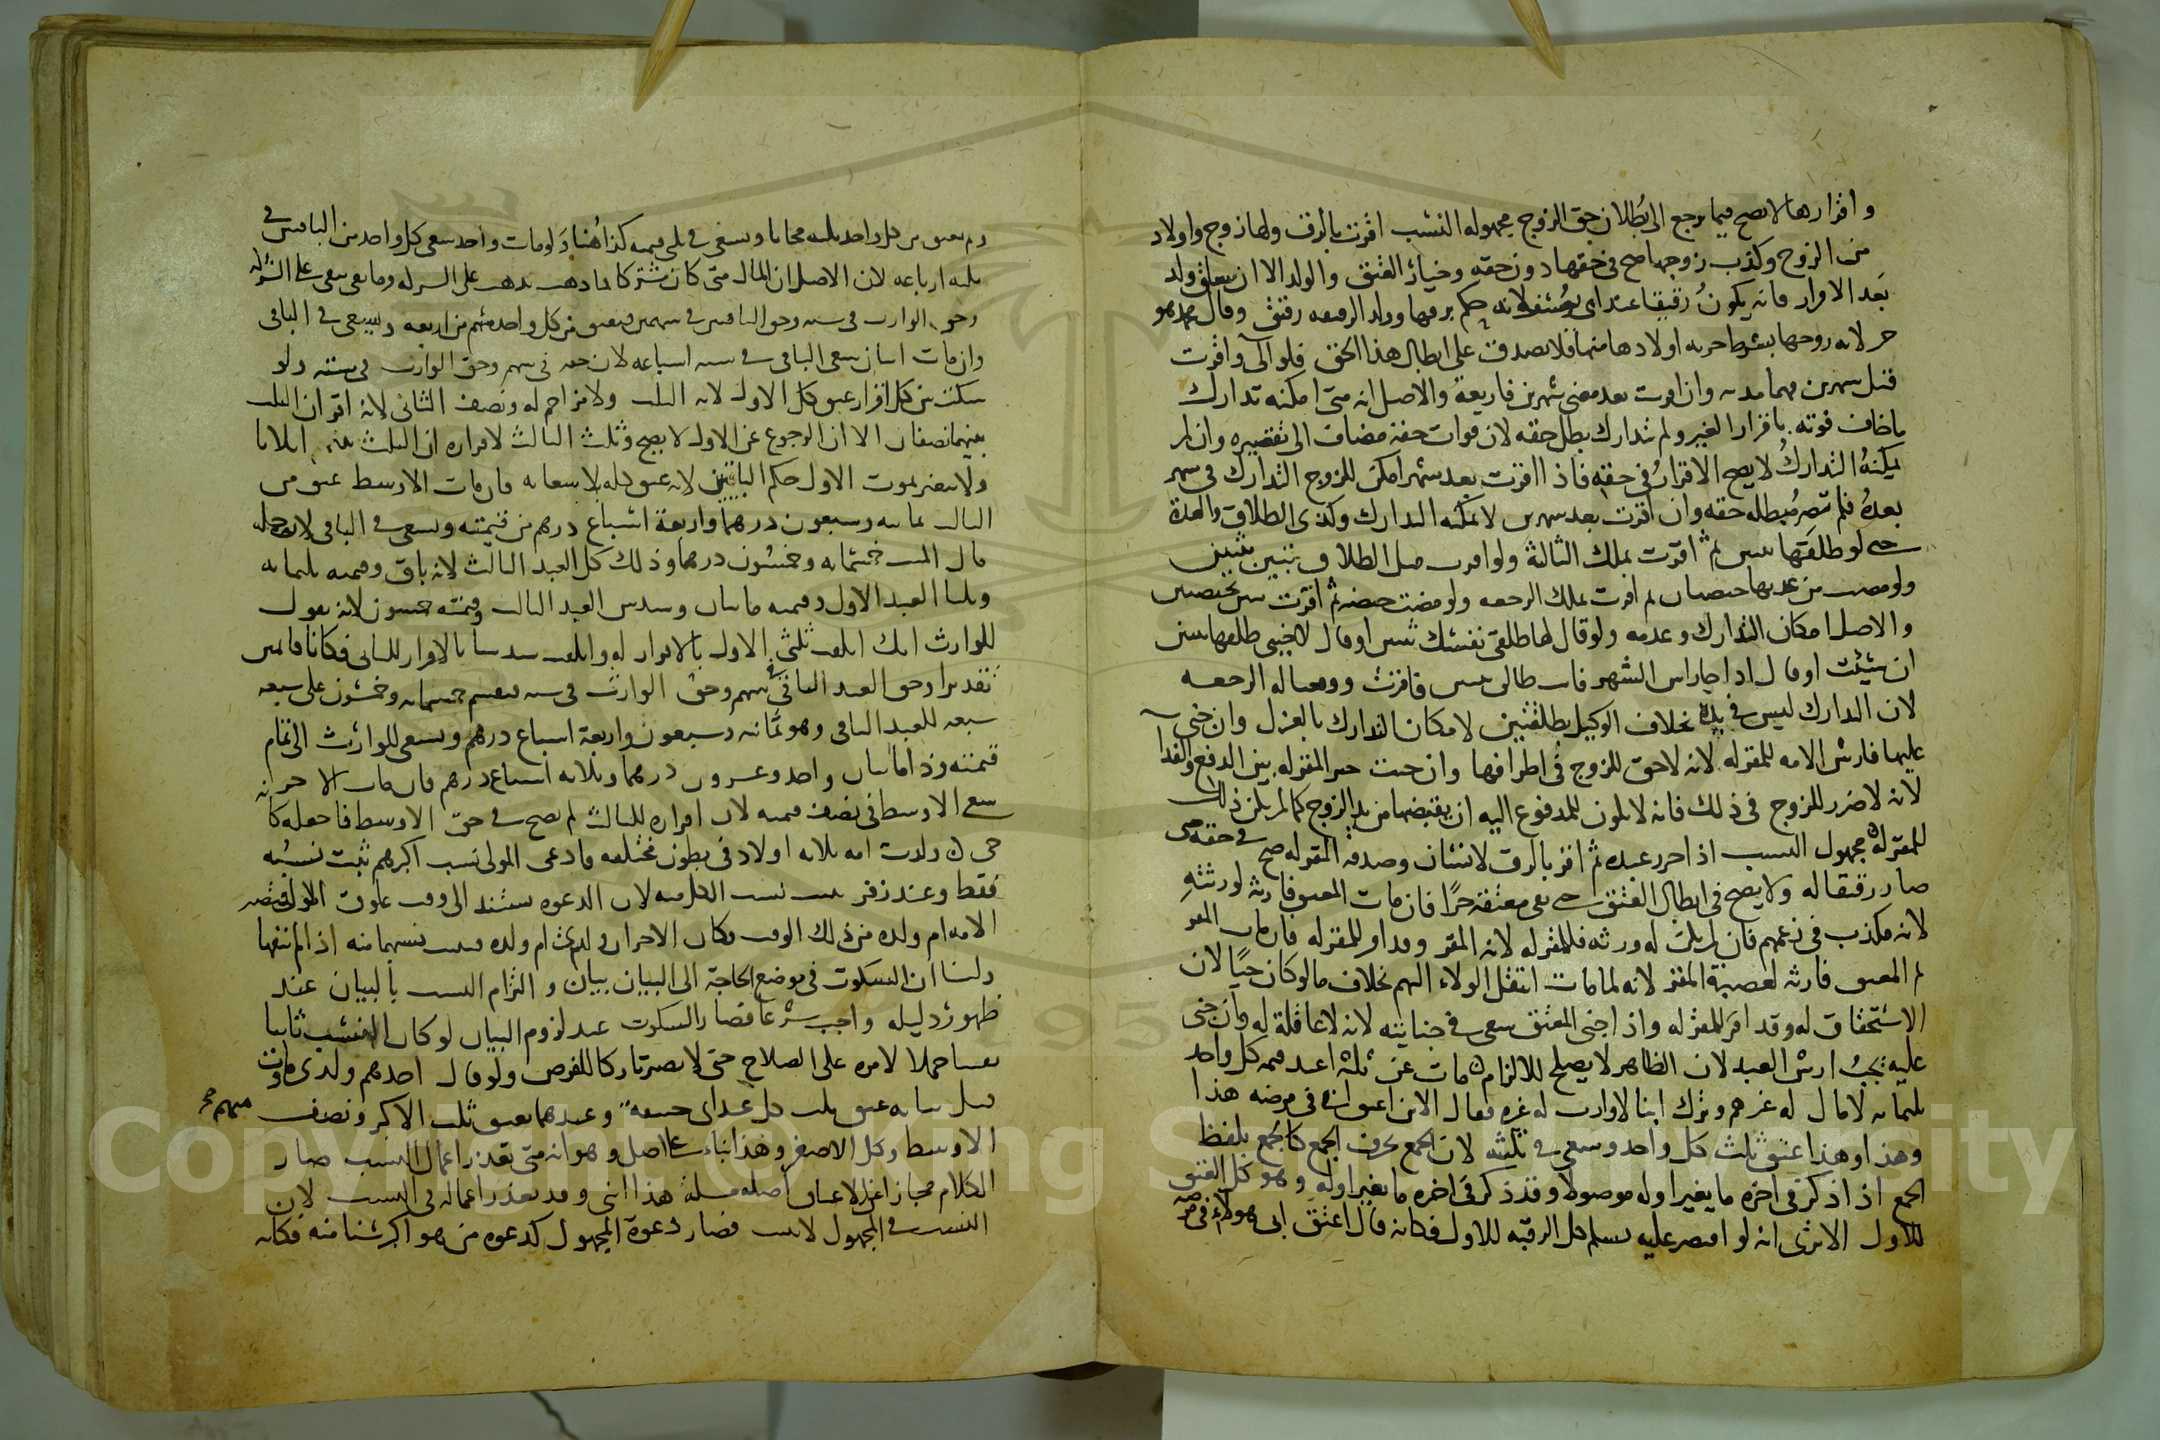 واقرارها لا يصح فيما يرجع الى بطلان حق الزوج مجهوله النسب اقرت بالرق ولها زوج واولاد
من الزوج وكذب زوجها صح في حقها دون حقه وخيار العتق والولد الا ان يعلق ولد
بعد الاقرار فانه يكون رقيقا عند ابي يوسف لانه حكم برقها وولد الرقيقه رقيق وقال محمد هو
حر لانه تزوجها بشرط حريه اولادها منها فلا تصدق على ابطال هذا الحق فلو الى واقرت
قبل شهرين فهما مدته وان اقرت بعد مضي شهرين فاربعة والاصل انه متى امكنه تدارك
ما خاف فوته باقرار الغير ولم يتدارك بطل حقه لان فوات حقه مضاف الى تقصيره وان لم
يمكنه التدارك لا يصح الاقرار في حقه فاذا اقرت بعد شهر امكن للزوج التدارك في شهر
بعده فلم تصر مبطله حقه وان اقرت بعد شهرين لا يمكنه التدارك وكذى الطلاق والعدة
حتى لو طلقها ثنتين ثم اقرت يملك الثالثة ولو اقرت قبل الطلاق تبين بثنتين
ولو مضت من عدتها حيضتان ثم اقرت يملك الرجعه ولو مضت حيضه ثم اقرت تبين بحيضتين
والاصل امكان التدارك وعدمه ولو قال لها طلقي نفسك ثنتين او قال لاجنبي طلقها ثنتين
ان شئت او قال اذا جا راس الشهر فانت طالق ثنتين فاقرت ووقعتا له الرجعه
لان التدارك ليس في يده بخلاف الوكيل بطلقتين لامكان التدارك بالعزل وان جني
عليها فارش الامه للمقر له لانه لا حق للزوج في اطرافها وان جنت خير المقر له بين الدفع والفدا
لانه لا ضرر للزوج في ذلك فانه لا يكون للمدفوع اليه ان يقبضها من يد الزوج كما لم يكن ذلك
للمقر له مجهول النسب اذا حرر عبده ثم اقر بالرق لانسان وصدقه المقر له صح في حقه حتى
صار رقيقا له ولا يصح في ابطال العتق حتى بقي معتقه حرا فان مات المعتق فارثه لورثته
لانه مكذب في زعمهم فان لم يكن له ورثه فللمقر له لانه المقر وقد اقر للمقر له فان مات المقر
ثم المعتق فارثه لعصبة المقر لانه لما مات انتقل الولاء اليهم بخلاف ما لو كان حيا لان
الاستحقاق له وقد اقر للمقر له واذا جنى المعتق سعى في جنايته لانه لا عاقلة له وان جنى
عليه يجب ارش العبد لان الظاهر لا يصلح للالزام مات عن ثلثة اعبد قيمه كل واحد
ثلثمائه لا مال له غيرهم وترك ابنا لا وارث له غيره فقال الابن اعتق ابي في مرضه هذا
وهذا وهذا عتق ثلث كل واحد وسعى في ثلثيه لان الجمع بحرف الجمع كالجمع بلفظ
الجمع اذا ذكر في اخره ما يغير اوله موصولا وقد ذكر في اخره ما يغير اوله وهو كل العتق
للاول الا ترى انه لو اقتصر عليه يسلم كل الرقبه للاول فكانه قال اعتق ابي هولاء في مرضه
ثم يعتق من كل واحد ثلثه مجانا ويسعى في ثلثي قيمته كذا هنا ولو مات واحد سعى كل واحد من الباقيين في
ثلثه ارباعه لان الاصل ان المال متى كان مشتركا فما ذهب يذهب على الشركه وما بقي يبقى على الشركه
وحق الوارث في سته وحق الباقيين في سهمين فيعتق من كل واحد سهم من اربعه ويسعى في الباقي
وان مات اثنان سعى الباقي في سته اسباعه لان حقه في سهم وحق الوارث في سته ولو
سكت بين كل اقرار عتق كل الاول لانه الثلث ولا مزاحم له ونصف الثاني لانه اقر ان الثلث
بينهما نصفان الا ان الرجوع عن الاول لا يصح وثلث الثالث لاقراره ان الثلث بينهم اثلاثا
ولا يتغير بموت الاول حكم الباقيين لانه عتق كله بلا سعايه فان مات الاوسط عتق من
الثالث ثمانيه وسبعون درهما واربعة اسباع درهم من قيمته ويسعى في الباقي لان جمله
مال الميت خمسمائه وخمسون درهما وذلك كل العبد الثالث لانه باق وقيمته ثلثمائه
وثلثا العبد الاول وقيمته مائتان وسدس العبد الثالث وقيمته خمسون لانه يقول
للوارث انك اتلفت ثلثي الاول بالاقرار له واتلفت سدسا بالاقرار للثاني فكانا قائمين
تقديرا وحق العبد الباقي في سهم وحق الوارث في سته فيقسم خمسمائه وخمسون على سبعه
سبعه للعبد الباقي وهو ثمانيه وسبعون واربعة اسباع درهم ويسعى للوارث الى تمام
قيمته وذا مائتان واحد وعشرون درهما وثلاثه اسباع درهم فان مات الاخر انه
سعى الاوسط في نصف قيمته لان اقراره للثالث لم يصح في حق الاوسط فاجعله كا
حي ولدت امه ثلاثه اولاد في بطون مختلفه فادعى المولى نسب اكبرهم ثبت نسبه
فقط وعند زفر يثبت نسب الكل منه لان الدعوه تستند الى وقت علوق الاول فتصير
الامه ام ولده من ذلك الوقت فكان الاخران ولدي ام ولده فيثبت نسبهما منه اذا لم ينفهما
ولنا ان السكوت في موضع الحاجة الى البيان بيان والتزام النسب بالبيان عند
ظهور دليله واجب شرعا فصار السكوت عند لزوم البيان لو كان النسب ثابتا
نفيا حملا لامره على الصلاح حتى لا يصير تاركا للفرض ولو قال احدهم ولدي ومات
قبل بيانه عتق ثلث كل عند ابي حنيفه وعندهما يعتق ثلث الاكبر ونصف
الاوسط وكل الاصغر وهذا بناء على اصل وهو انه متى تعذر اعمال النسب صار
الكلام مجازا عن الاعتاق اصله مسلة هذا ابني وقد تعذر اعماله في النسب لان
النسب في المجهول لا يثبت فصار دعوة المجهول كدعوه من هو اكبر سنا منه فكانه